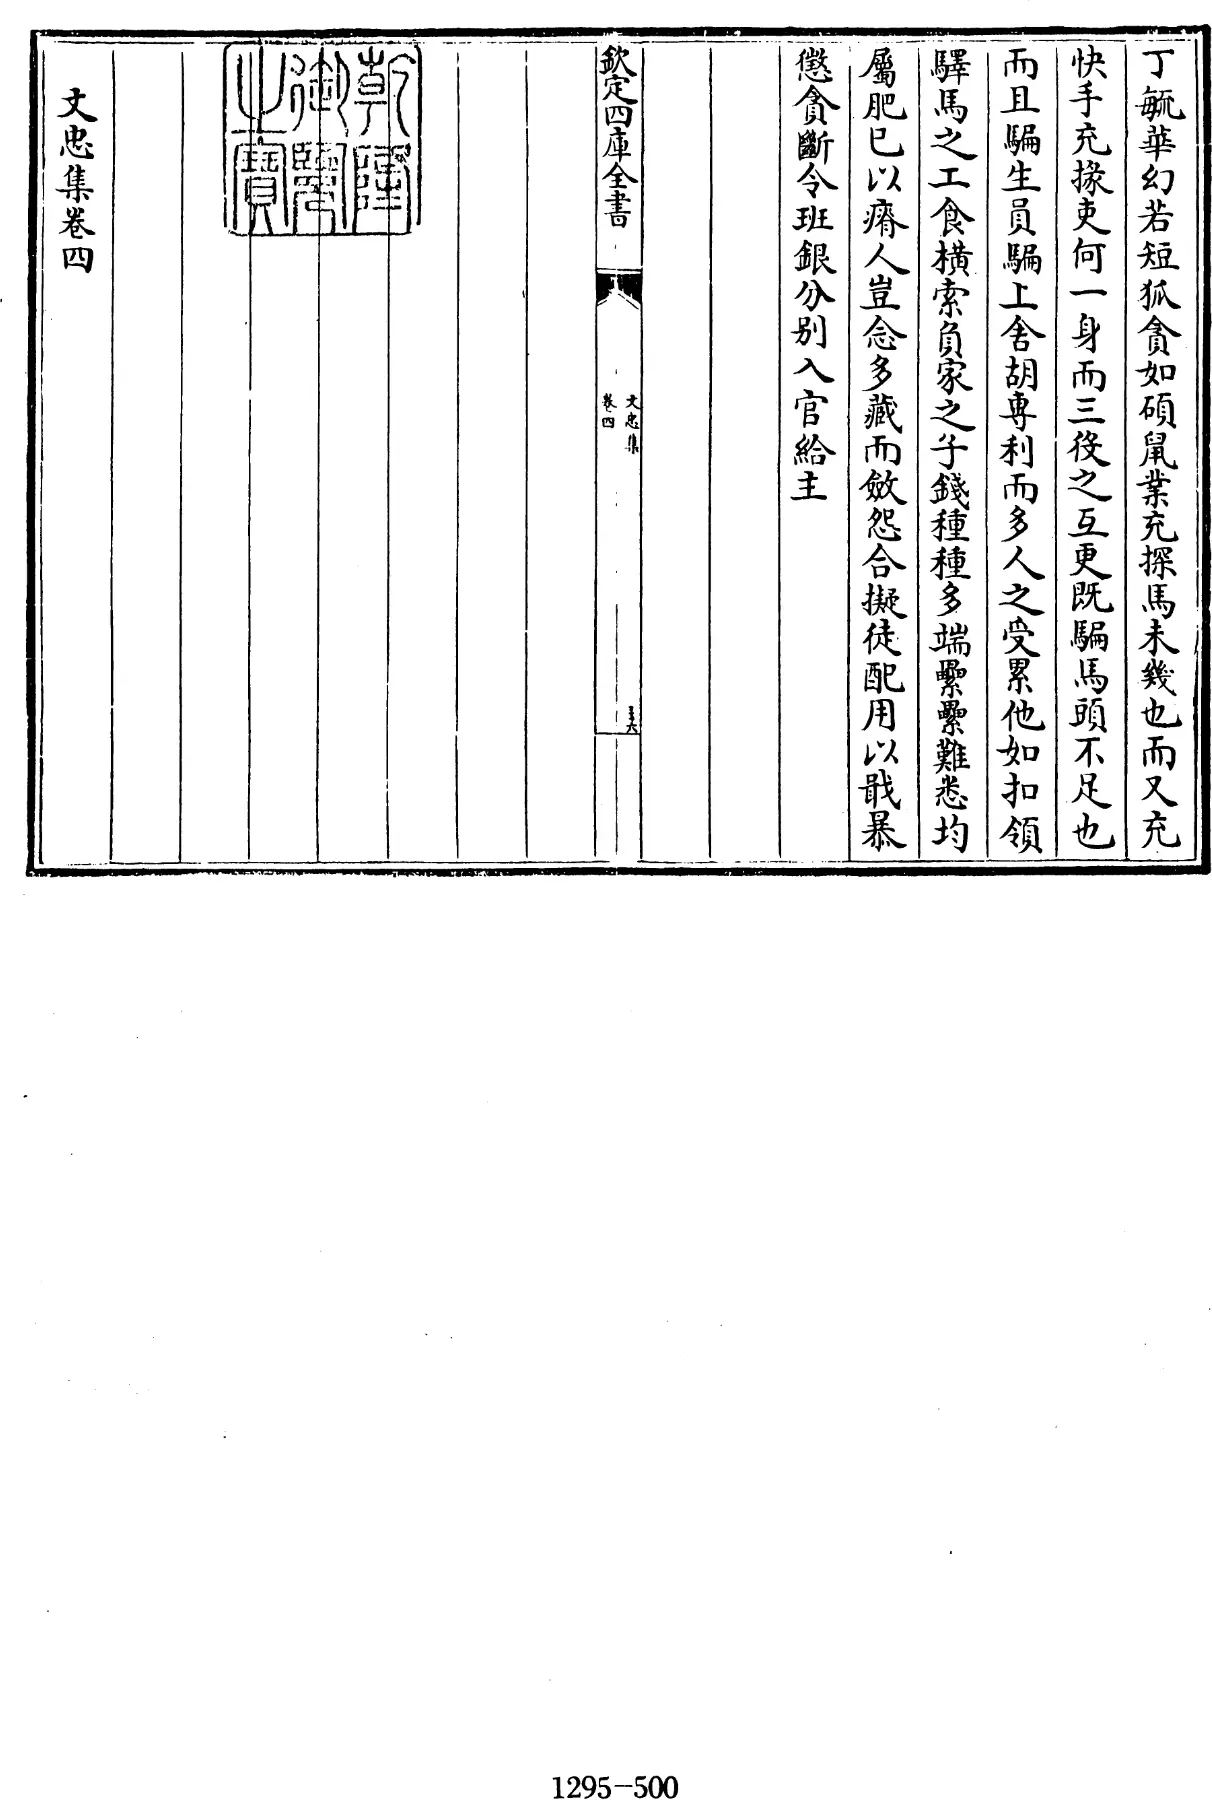 丁毓華幻若短狐貪如碩鼠業充探馬未幾也而又充
快手充掾吏何一身而三役之互更既騙馬頭不足也
而且騙生員騙上舍胡專利而多人之受累他如扣領
驛馬之工食橫索負家之子錢種種多端纍纍難悉均
屬肥已以瘠人豈念多藏而斂怨合擬徒配用以戢暴
懲貪斷令班銀分别入官給主
欽定四庫全書
文忠集
卷四
乾隆
御覽
之寶
文忠集卷四
1295-500